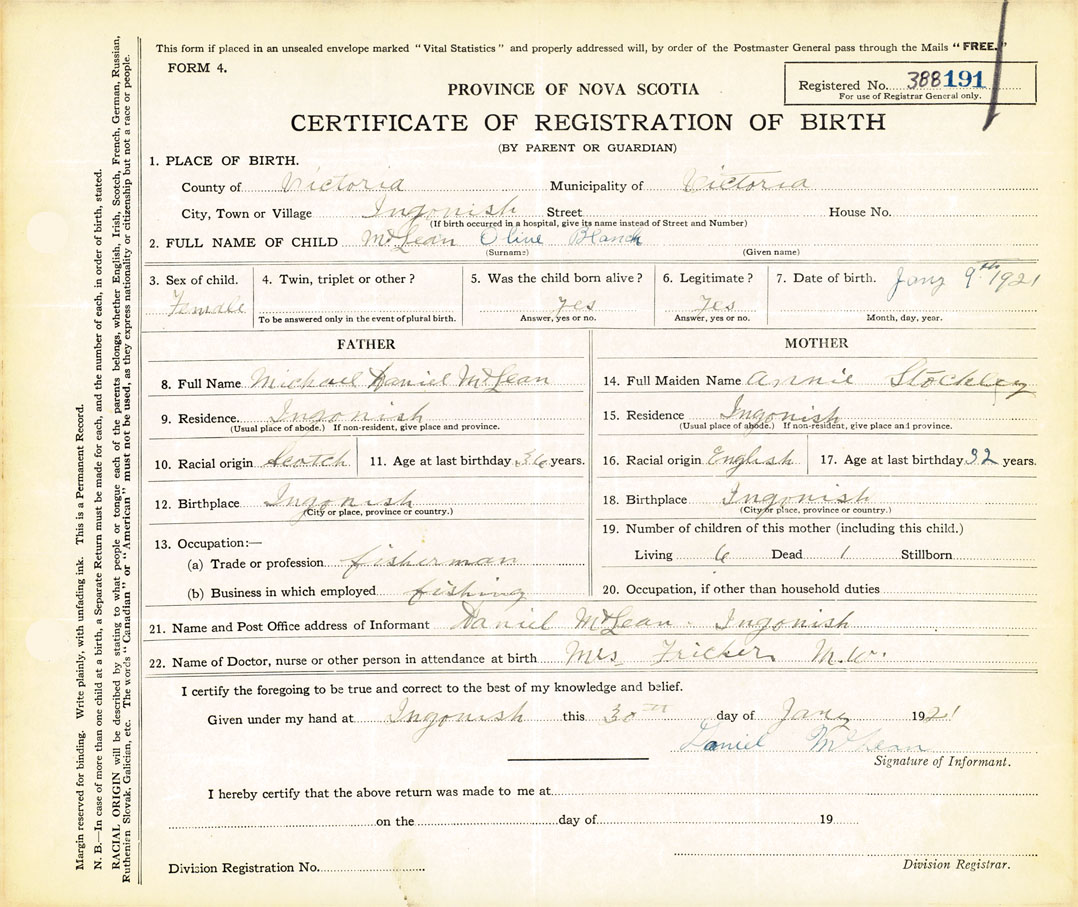 This form if placed in an unsealed envelope marked "Vital Statistics" and properly addressed will, by order of the Postmaster General pass through the Mails "FREE."
FORM 4.
Registered No. 388191
For use of Registrar General only.
PROVINCE OF NOVA SCOTIA
CERTIFICATE OF REGISTRATION OF BIRTH
(BY PARENT OR GUARDIAN)
1. PLACE OF BIRTH.
County of Victoria Municipality of Victoria
City, Town or Village Ingonish Street House No.
(If birth occurred in a hospital, give its name instead of Street and Number)
2. FULL NAME OF CHILD McLean Olive Blanch
(Surname) (Given name)
3. Sex of child. 4. Twin, triplet or other? 5. Was the child born alive? 6. Legitimate? 7. Date of birth. Jany 9th 1921
Female yes Yes
To be answered only in the event of plural birth. Answer, yes or no. Answer, yes or no. Month, day, year.
FATHER
8. Full Name Michael Daniel McLean
9. Residence. Ingonish
(Usual place of abode.) If non-resident, give place and province.
10. Racial origin Scotch 11. Age at last birthday 36 years.
12. Birthplace Ingonish
(City or place, province or country.)
13. Occupation:—
(a) Trade or profession fisherman
(b) Business in which employed fishing
MOTHER
14. Full Maiden Name Annie Stockley
15. Residence Ingonish
(Usual place of abode.) If non-resident, give place and province.
16. Racial origin English 17. Age at last birthday 32 years.
18. Birthplace Ingonish
(City or place, province or country.)
19. Number of children of this mother (including this child.)
Living 6 Dead 1 Stillborn
20. Occupation, if other than household duties
21. Name and Post Office address of Informant Daniel McLean - Ingonish
22. Name of Doctor, nurse or other person in attendance at birth Mrs Fricker M.W.
I certify the foregoing to be true and correct to the best of my knowledge and belief.
Given under my hand at Ingonish this 30th day of Jany 1921
Daniel McLean
Signature of Informant.
I hereby certify that the above return was made to me at
on the day of 19
Division Registration No.
Division Registrar.
Margin reserved for binding. Write plainly, with unfading ink. This is a Permanent Record.
N. B.—In case of more than one child at a birth, a Separate Return must be made for each, and the number of each, in order of birth, stated.
RACIAL ORIGIN will be described by stating to what people or tongue each of the parents belongs, whether English, Irish, Scotch, French, German, Russian,
Ruthenien Slovak, Galician, etc. The words "Canadian" or "American" must not be used, as they express nationality or citizenship but not a race or people.